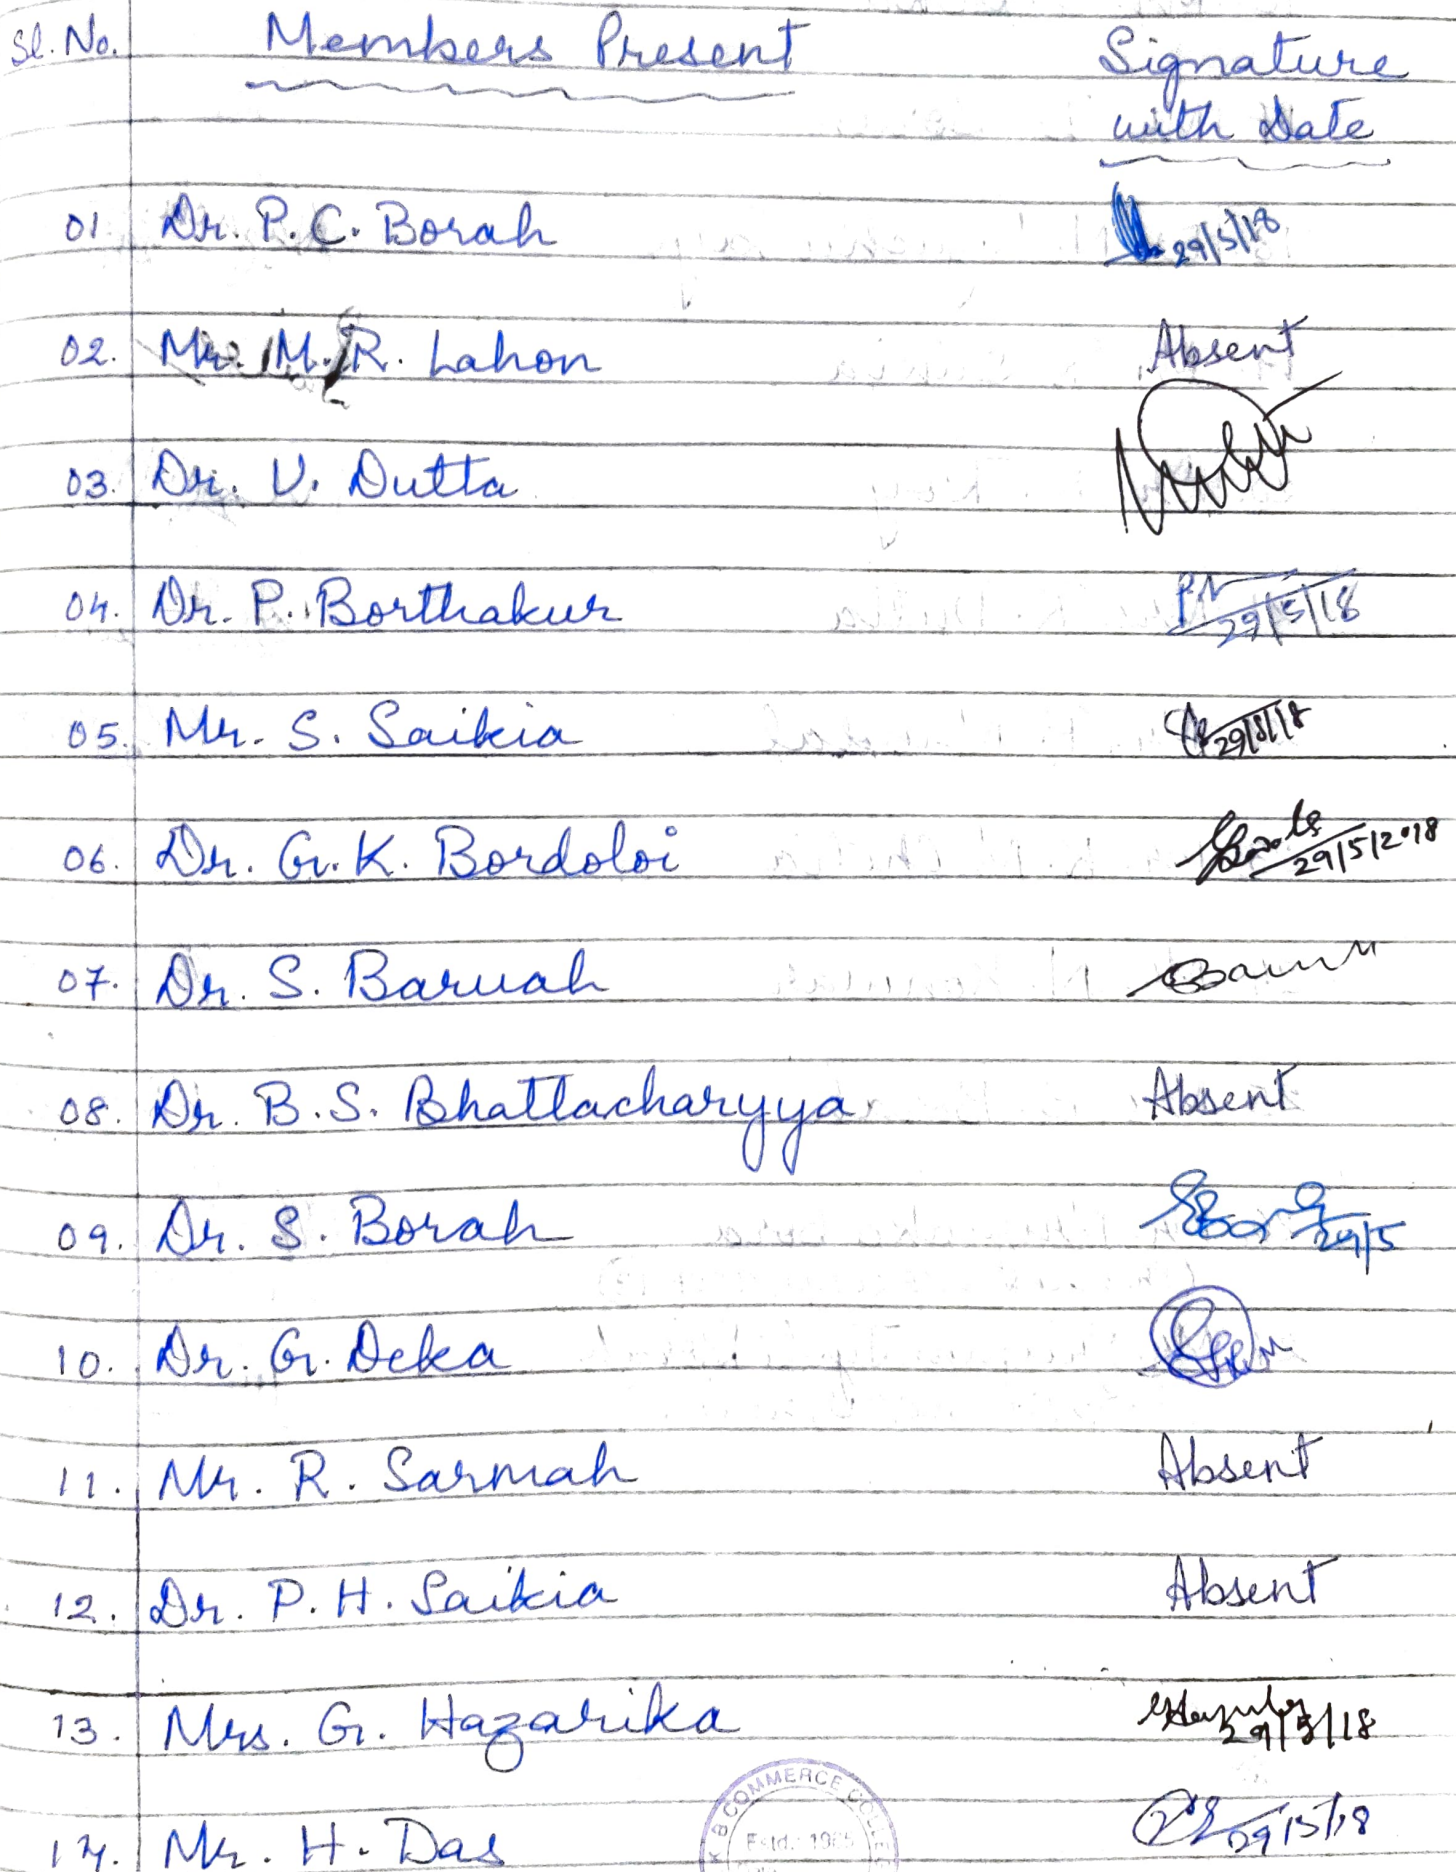 Sl. No. Members Present Signature
with Date
01 Dr. P. C. Borah 29/5/18
02. Mr. M. R. Lahon Absent
03. Dr. U. Dutta
04. Dr. P. Borthakur 29/5/18
05. Mr. S. Saikia 29/5/18
06. Dr. G. K. Bordoloi 29/5/2018
07. Dr. S. Baruah
08. Dr. B. S. Bhattacharyya Absent
09. Dr. S. Borah 29/5
10. Dr. G. Deka
11. Mr. R. Sarmah Absent
12. Dr. P. H. Saikia Absent
13. Mrs. G. Hazarika 29/5/18
14. Mr. H. Das 29/5/18
K B COMMERCE COLLE
Estd.: 1985